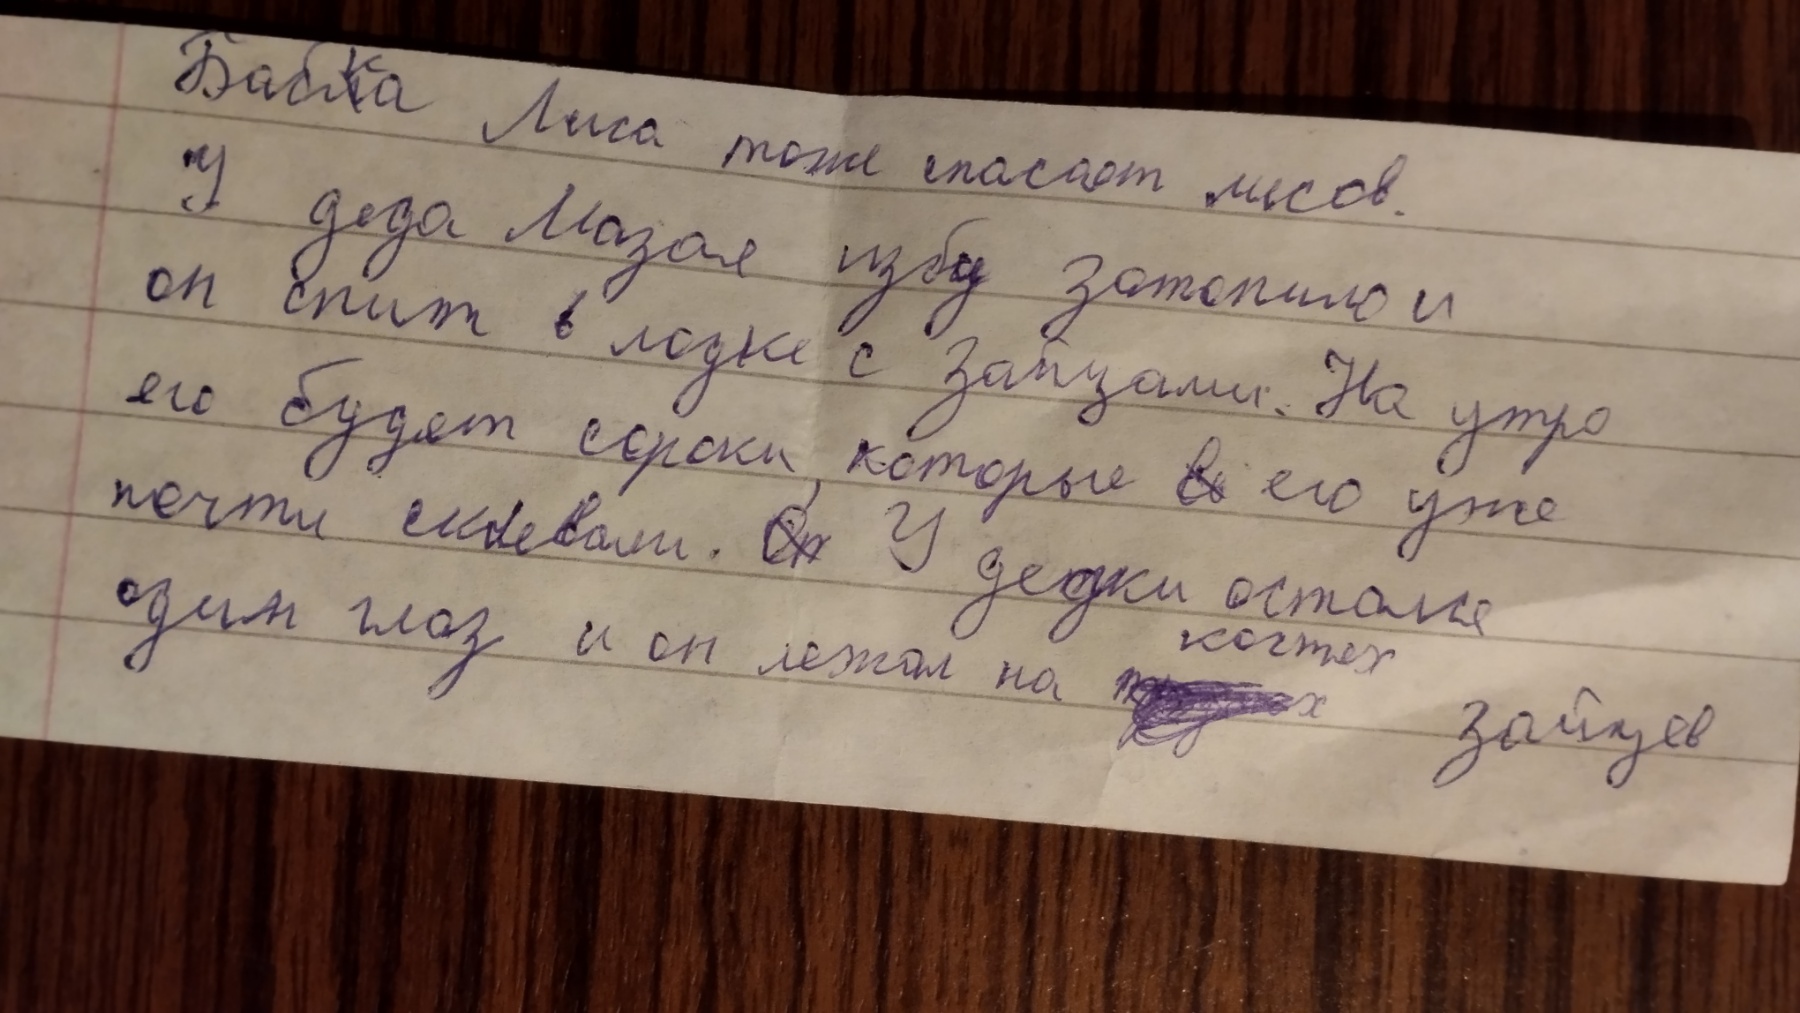 Бабка Лиса тоже спасает лисов.
У деда Мазая избу затопило и
он спит в лодке с зайцами. На утро
его будят сороки, которые его уже
почти склевали. У дедки остался
один глаз и он лежал на костях зайцев